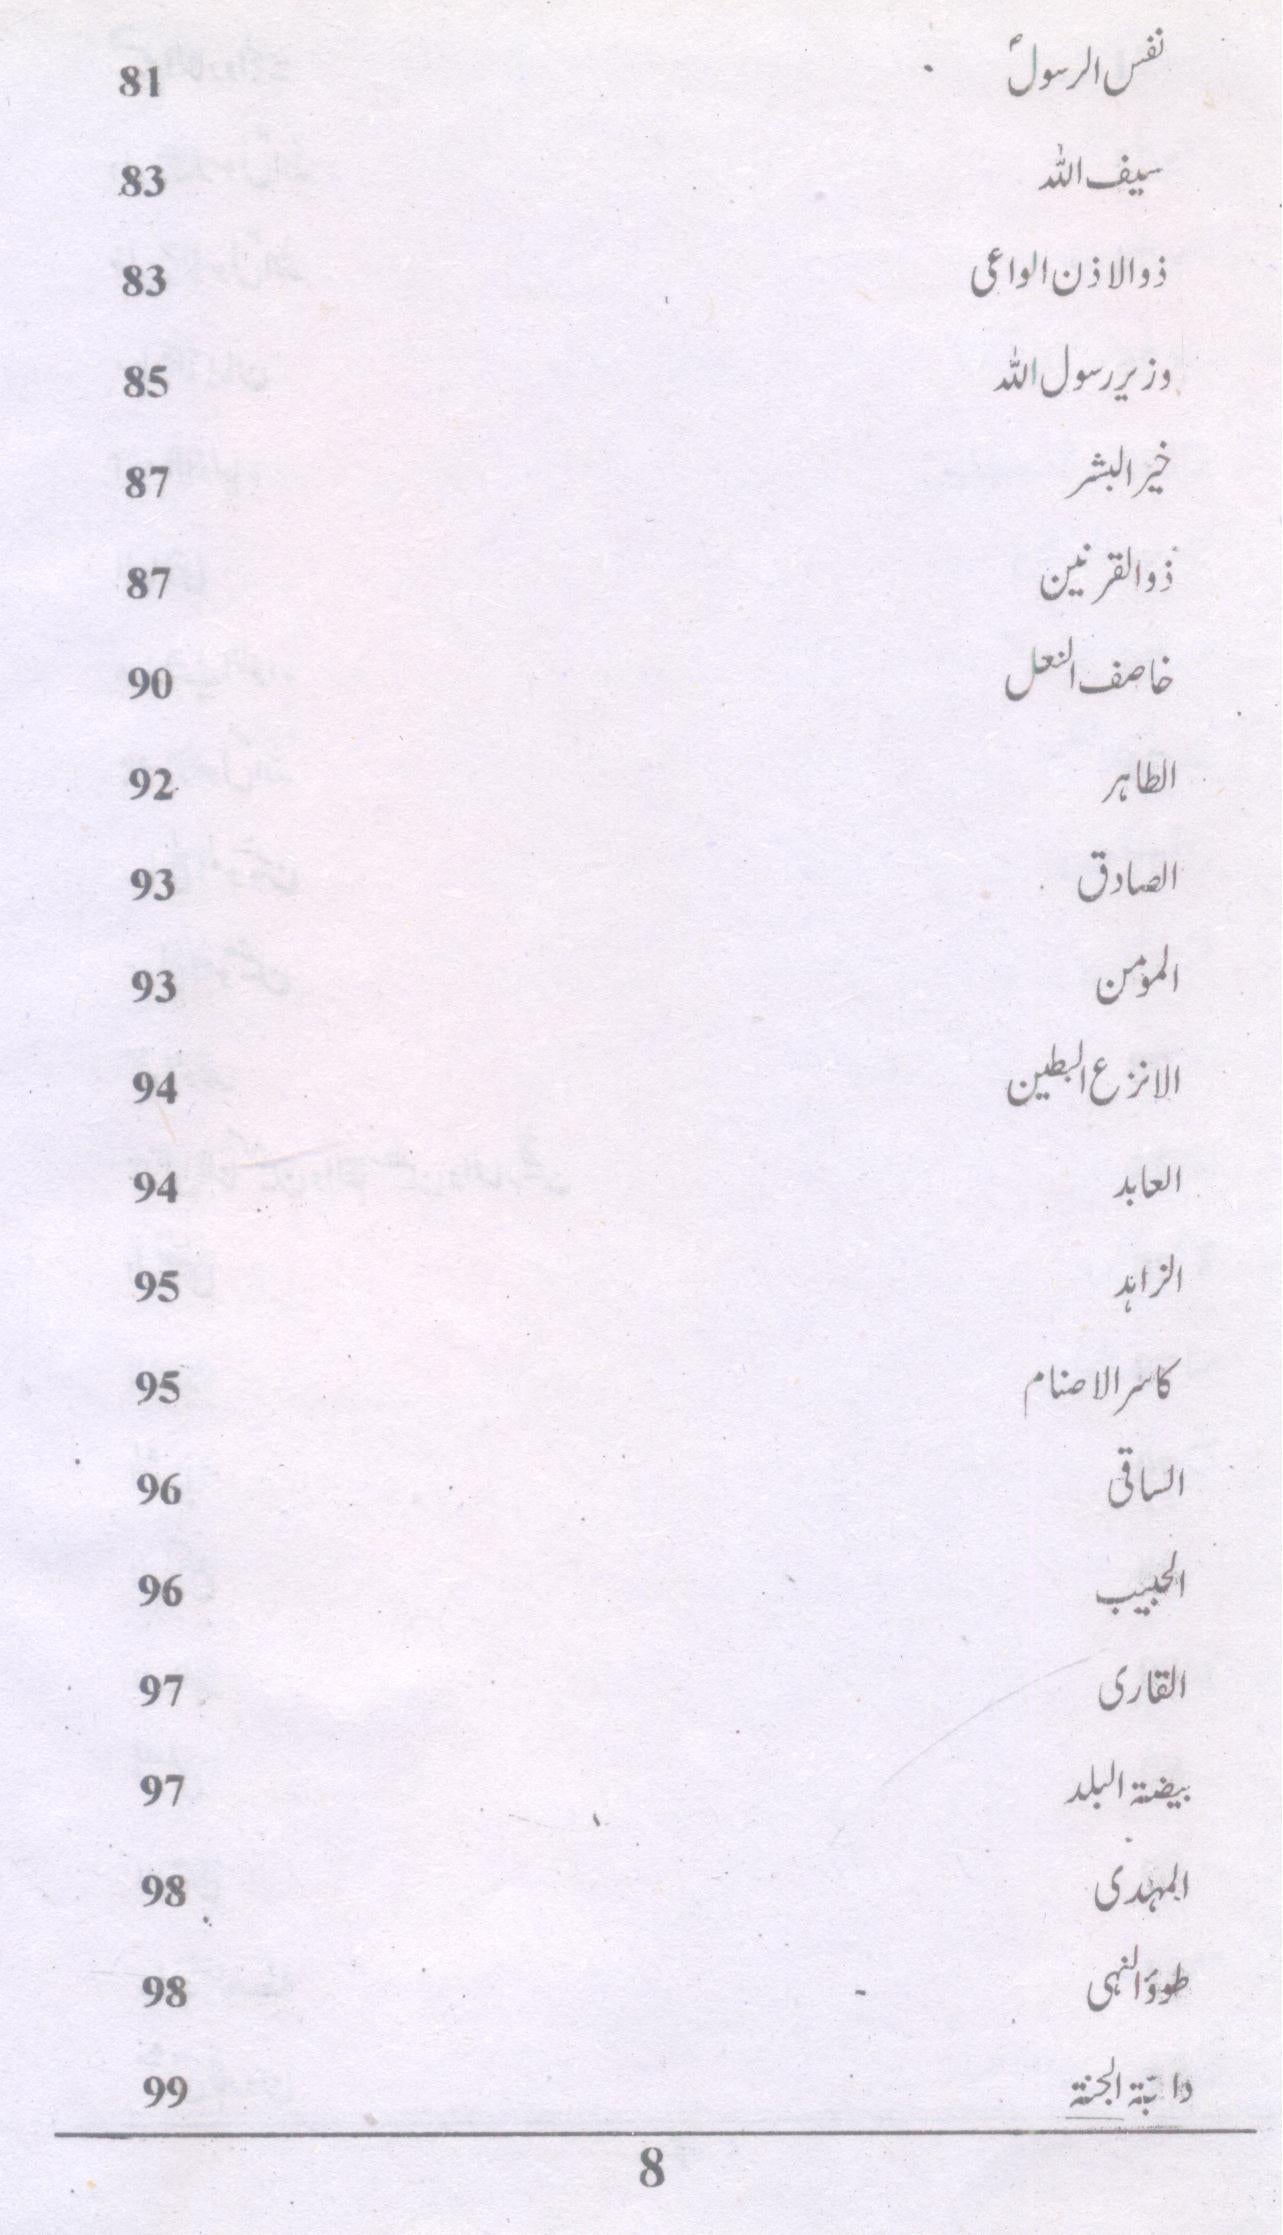 نفس الرسولؐ 81
سیف اللہ 83
ذوالاذن الواعی 83
وزیر رسول اللہ 85
خیر البشر 87
ذوالقرنین 87
خاصف النعل 90
الطاہر 92
الصادق 93
المؤمن 93
الانزع البطین 94
العابد 94
الزاہد 95
کاسر الاصنام 95
الساقی 96
الحبیب 96
القاری 97
بیضۃ البلد 97
المہدی 98
طودَ النہی 98
دابّۃ الجنۃ 99
8